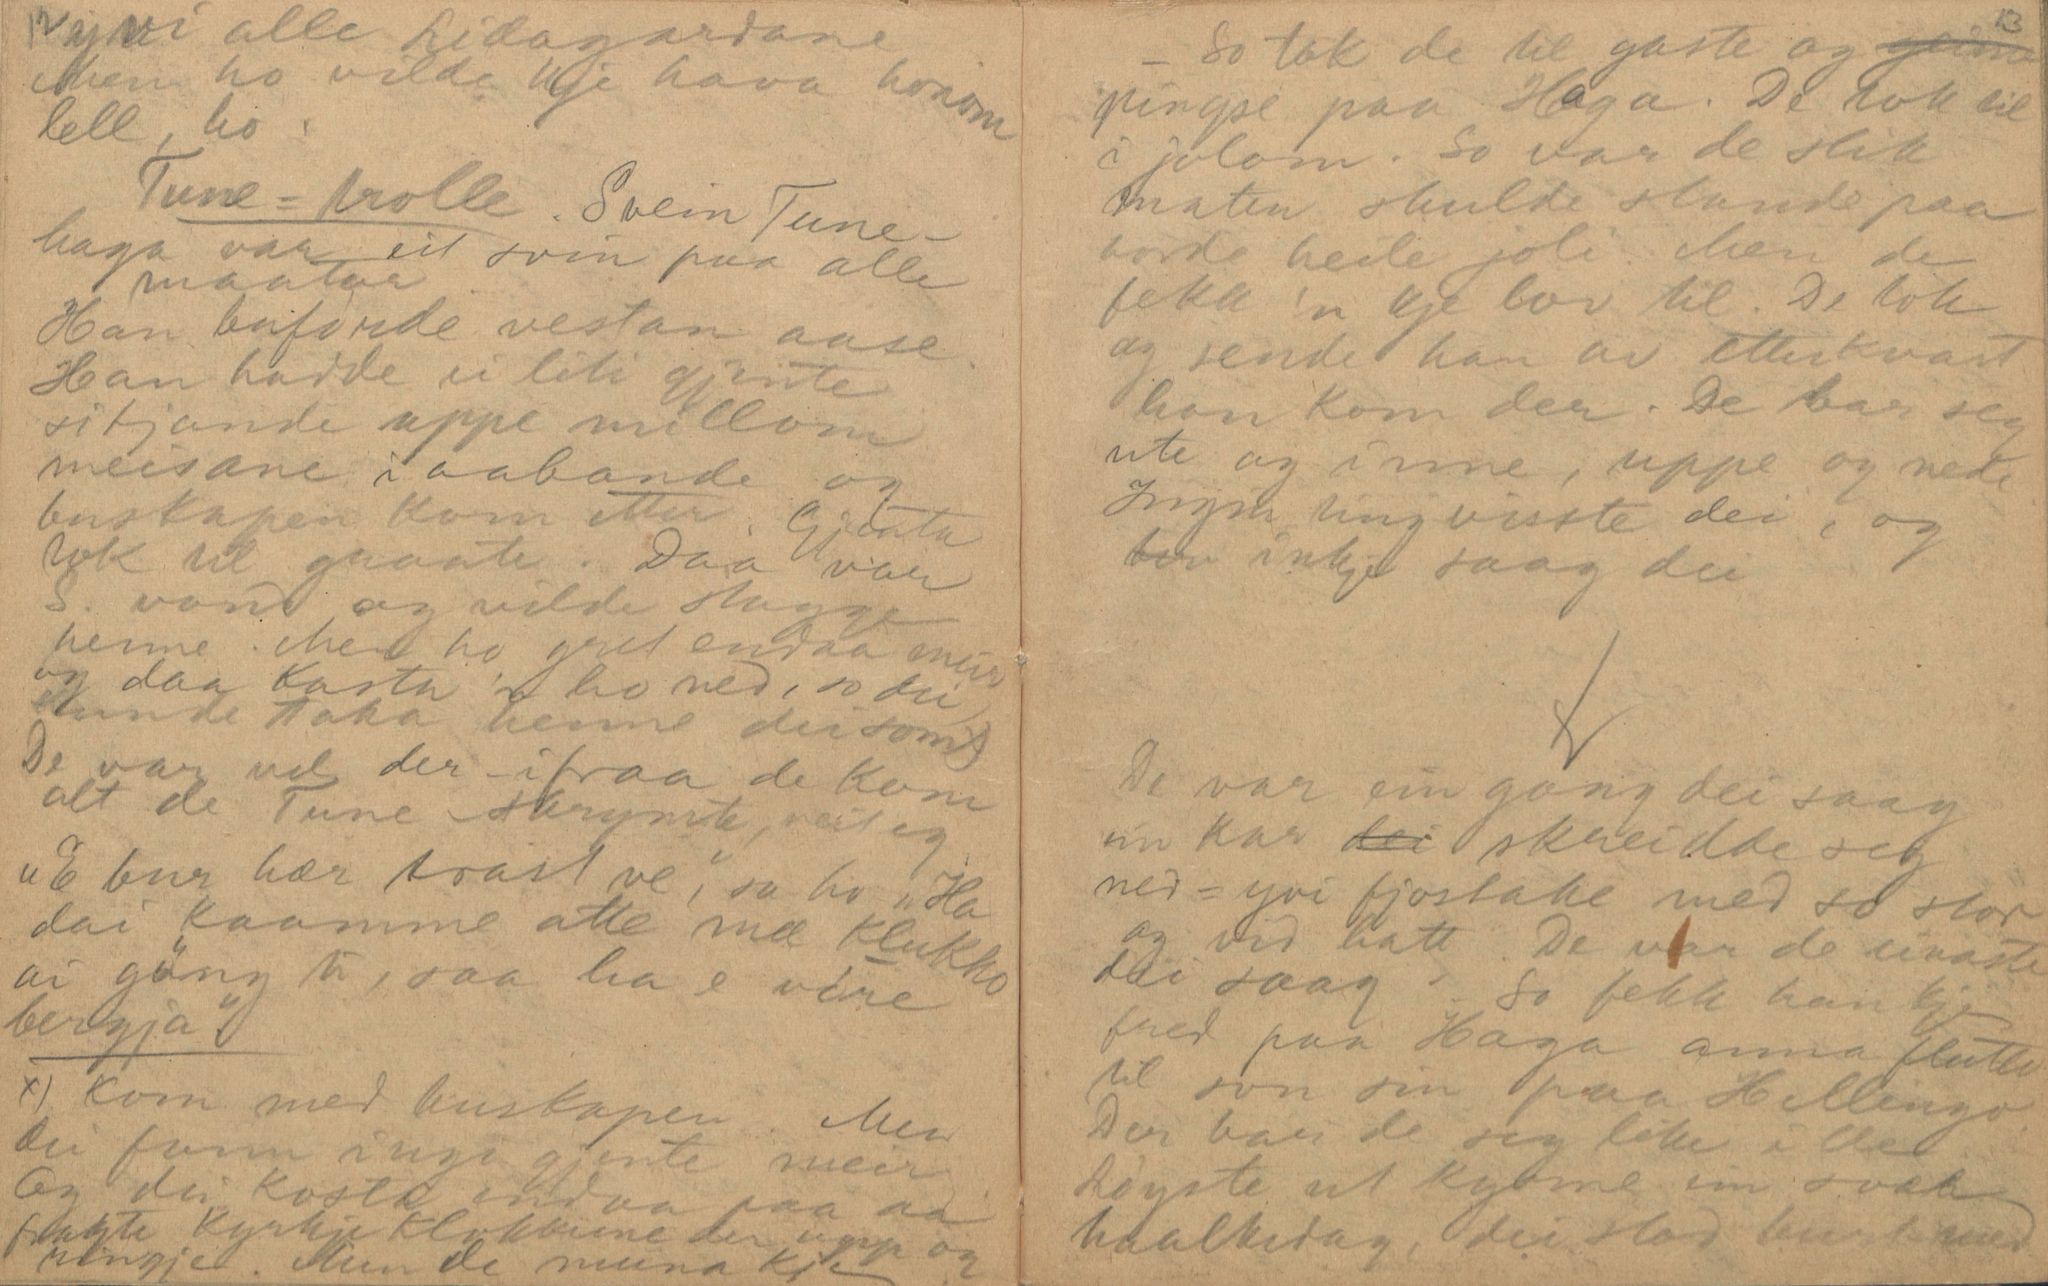 12
yvi alle Lidagardane
Men ho vilde kje hava honom
lell, ho.
Tune-trolle. Svein Tune-
haga var eit svin paa alle
maatar
Han buførde vestan aase.
Han hadde ei liti gjente
sitjande uppe millom
meisane i aabande og
buskapen kom etter. Gjenta
tok til graate. Daa var
S. vond og vilde stagge
henne. Men ho gret endaa meir
og daa kasta 'n ho ned, so dei
kunde taka henne dei som x)
De var vel der-ifraa de kom
alt de Tune-skrymte, veit eg
"E bur hær trast ve," sa ho "Ha
dai kaamme atte me klukko
ai gång te, saa ha e vore
bergja".
x) kom med buskapen. Men
dei funn ingi gjente meir
Og dei kosta endaa paa aa
frakte kyrkjeklokkune der upp og
ringje. Men de muna kje
13
- So tok de til gaste og
ringje paa Haga. De tok til
i jolom. So var de slik
maten skulde stande paa
borde heile joli. Men de
fekk 'n kje lov til. De tok
og sende han av etterkvart
han kom der. De bar seg
ute og inne, uppe og nede
Ingin ting visste dei, og
inkje saag dei
De var ein gong dei saag
ein kar dei skreidde seg
ned-yvi fjostake med so stor
og vid hatt. De var de einaste
dei saag. So fekk han kje
fred paa Haga anna flutte
til son sin paa Hellingo.
Der bar de seg like ille
Løyste ut kyrne ein
haalkedag, dei stod burt med